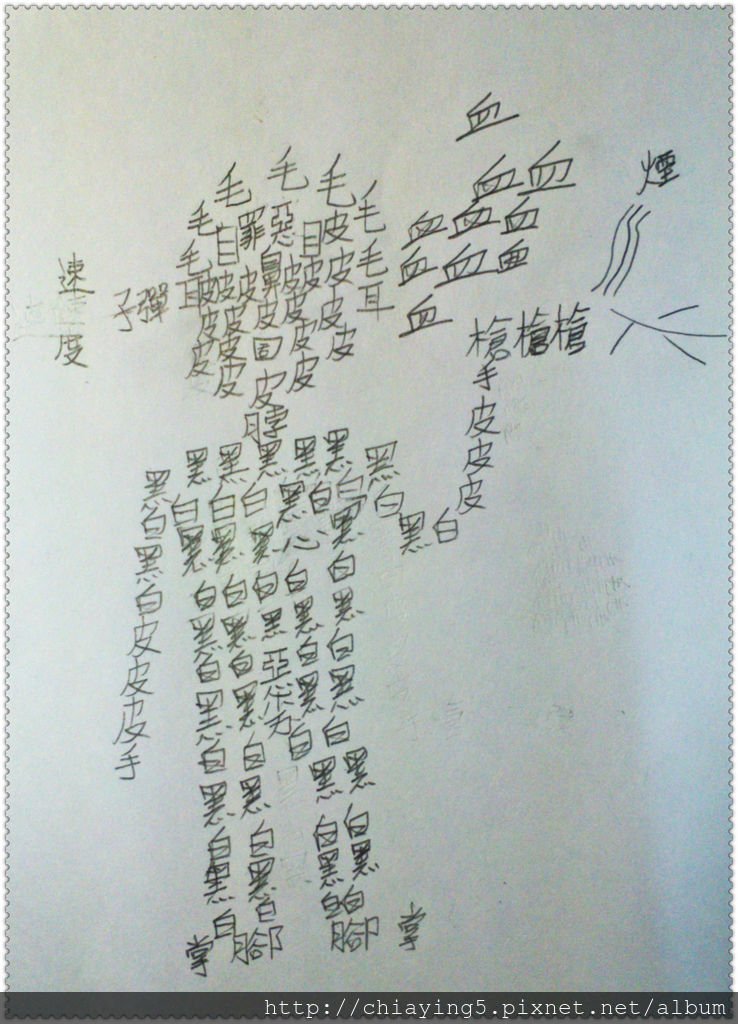 血
血血
血血血
血血血
血
煙
槍槍槍
手
皮
皮
皮
黑白
毛毛毛毛毛
毛毛
耳耳
目目
罪惡
鼻
皮皮皮皮皮
皮皮皮皮皮
皮皮皮皮
固
皮
脖
彈
子
速
度
黑黑黑黑黑黑
白白白黑白白白
黑黑黑心黑
白白白白白
黑黑黑黑黑
白白亞白白
黑黑黑黑
白白白白
黑黑黑黑
白白白白
黑黑黑黑
白白白白
腳腳
掌掌
黑
白
黑
白
皮
皮
皮
手
http://chiaying5.pixnet.net/album